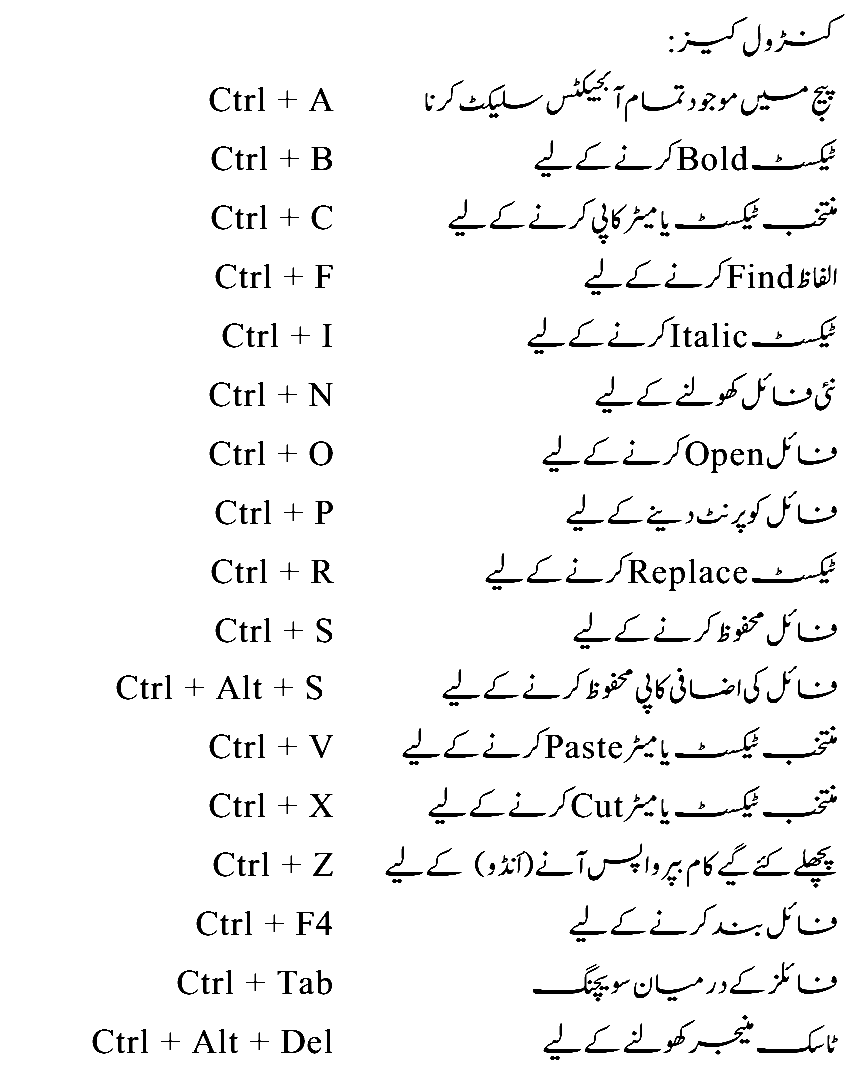 کنٹرول کیز:
پیج میں موجود تمام آبجیکٹس سلیکٹ کرنا Ctrl + A
ٹیکسٹ Bold کرنے کے لیے Ctrl + B
منتخب ٹیکسٹ یا میٹر کاپی کرنے کے لیے Ctrl + C
الفاظ Find کرنے کے لیے Ctrl + F
ٹیکسٹ Italic کرنے کے لیے Ctrl + I
نئی فائل کھولنے کے لیے Ctrl + N
فائل Open کرنے کے لیے Ctrl + O
فائل کو پرنٹ دینے کے لیے Ctrl + P
ٹیکسٹ Replace کرنے کے لیے Ctrl + R
فائل محفوظ کرنے کے لیے Ctrl + S
فائل کی اضافی کاپی محفوظ کرنے کے لیے Ctrl + Alt + S
منتخب ٹیکسٹ یا میٹر Paste کرنے کے لیے Ctrl + V
منتخب ٹیکسٹ یا میٹر Cut کرنے کے لیے Ctrl + X
پچھلے کئے گیے کام پر واپس آنے (اَنڈو) کے لیے Ctrl + Z
فائل بند کرنے کے لیے Ctrl + F4
فائلز کے درمیان سویچنگ Ctrl + Tab
ٹاسک منیجر کھولنے کے لیے Ctrl + Alt + Del